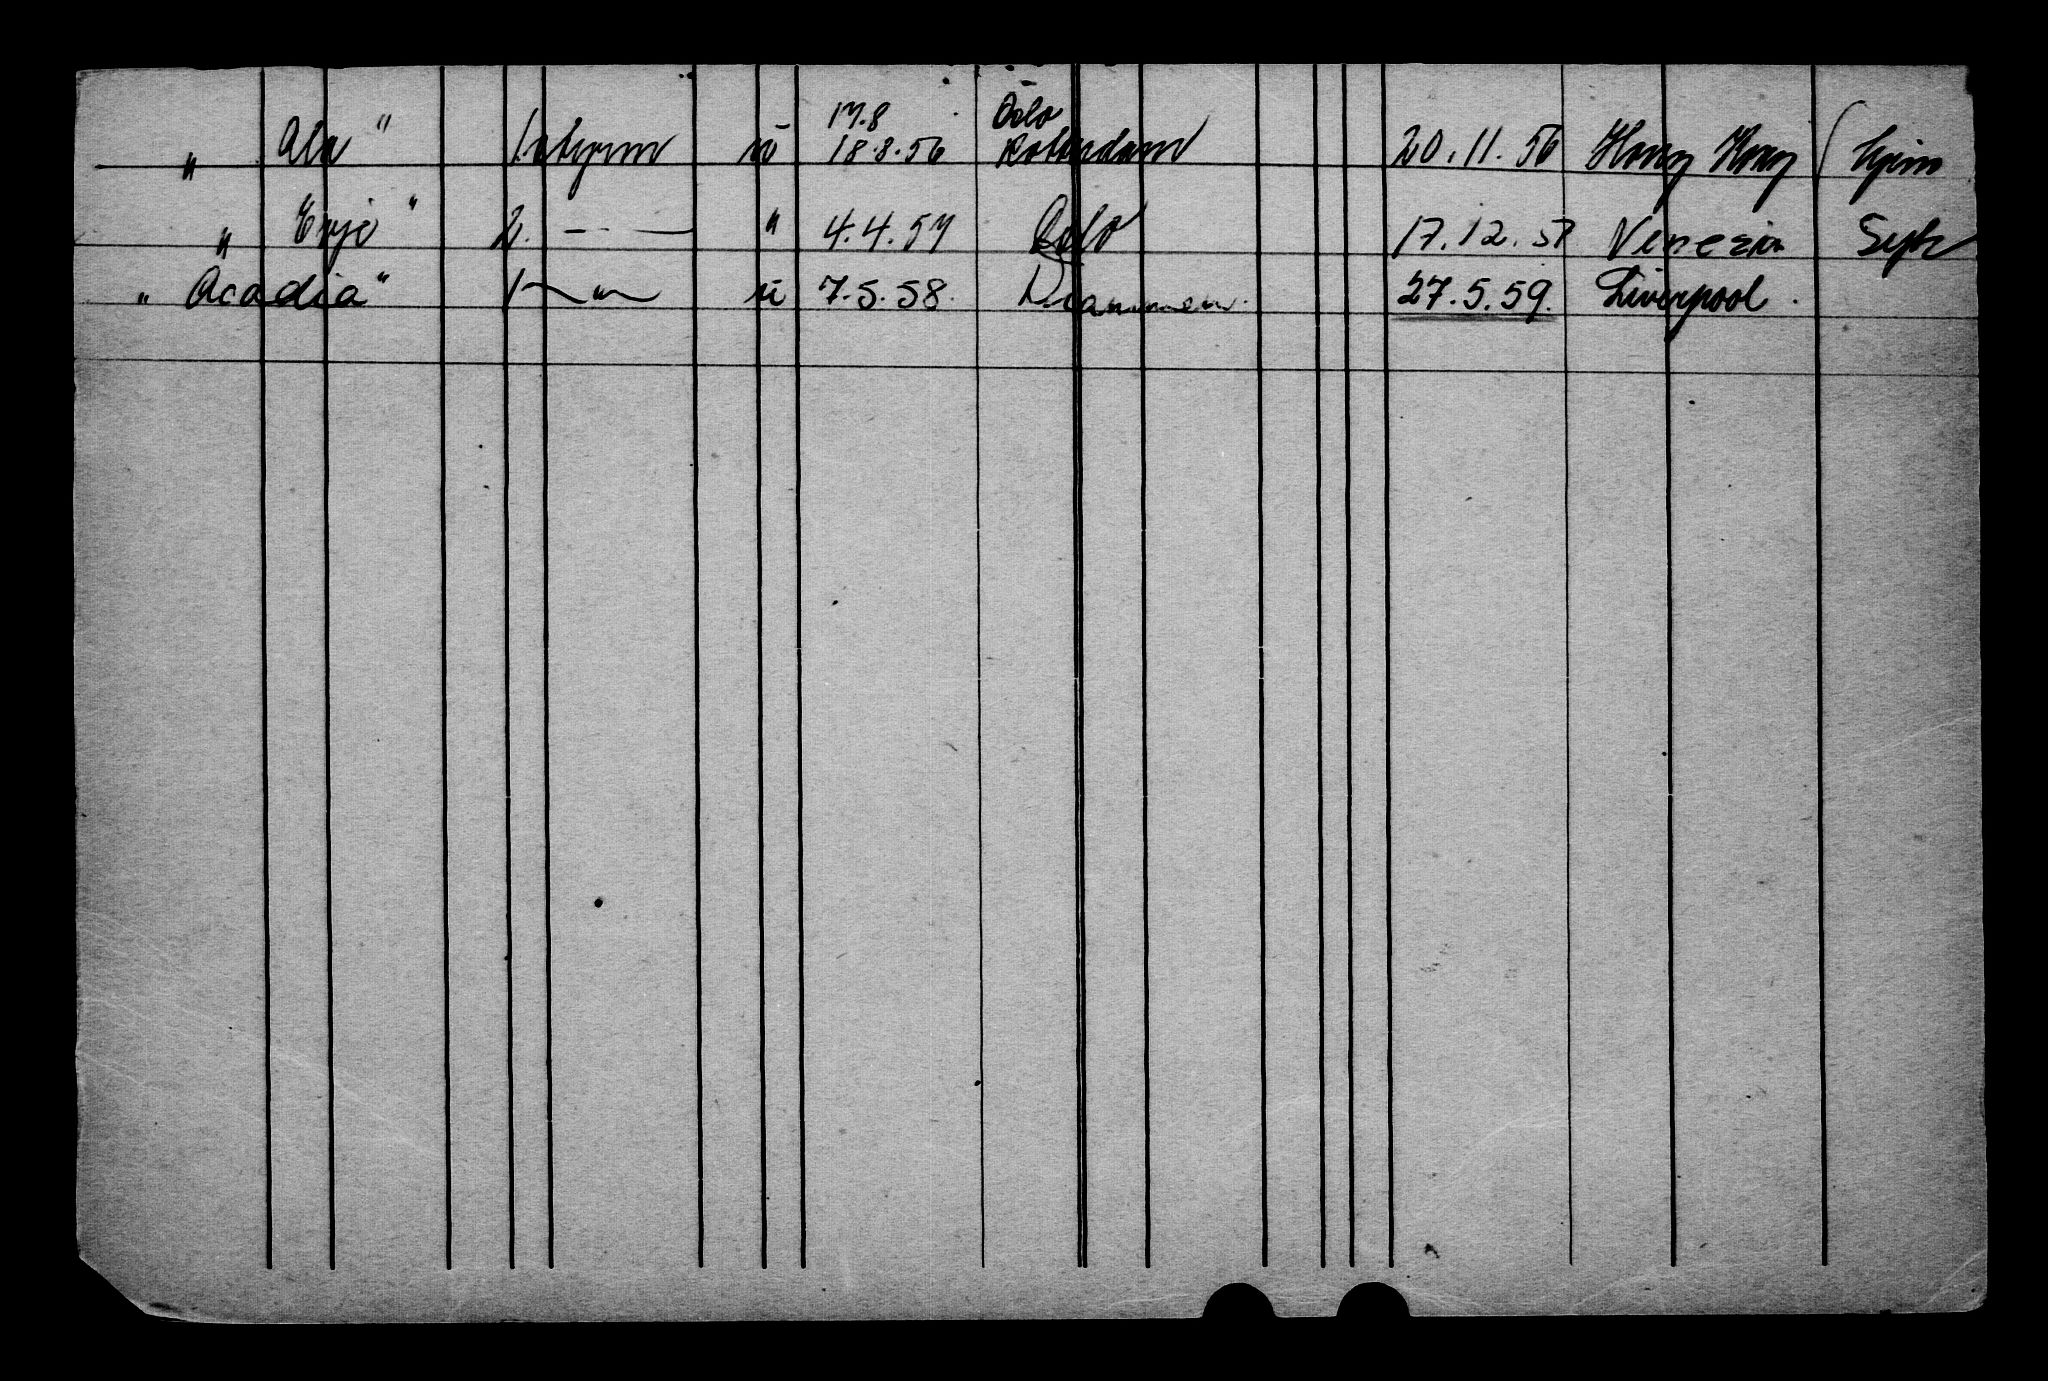 17.8 Oslo
„ Ala " 1 styrm u 18.8.56 Rotterdam 20.11.56 Hong Kong hjem
„ Evje " 2. — " — " 4.4.57 Oslo 17.12.57 Venezia Syk
„ Acadia " 1 — " — u 7.5.58. Drammen. 27.5.59. Liverpool.